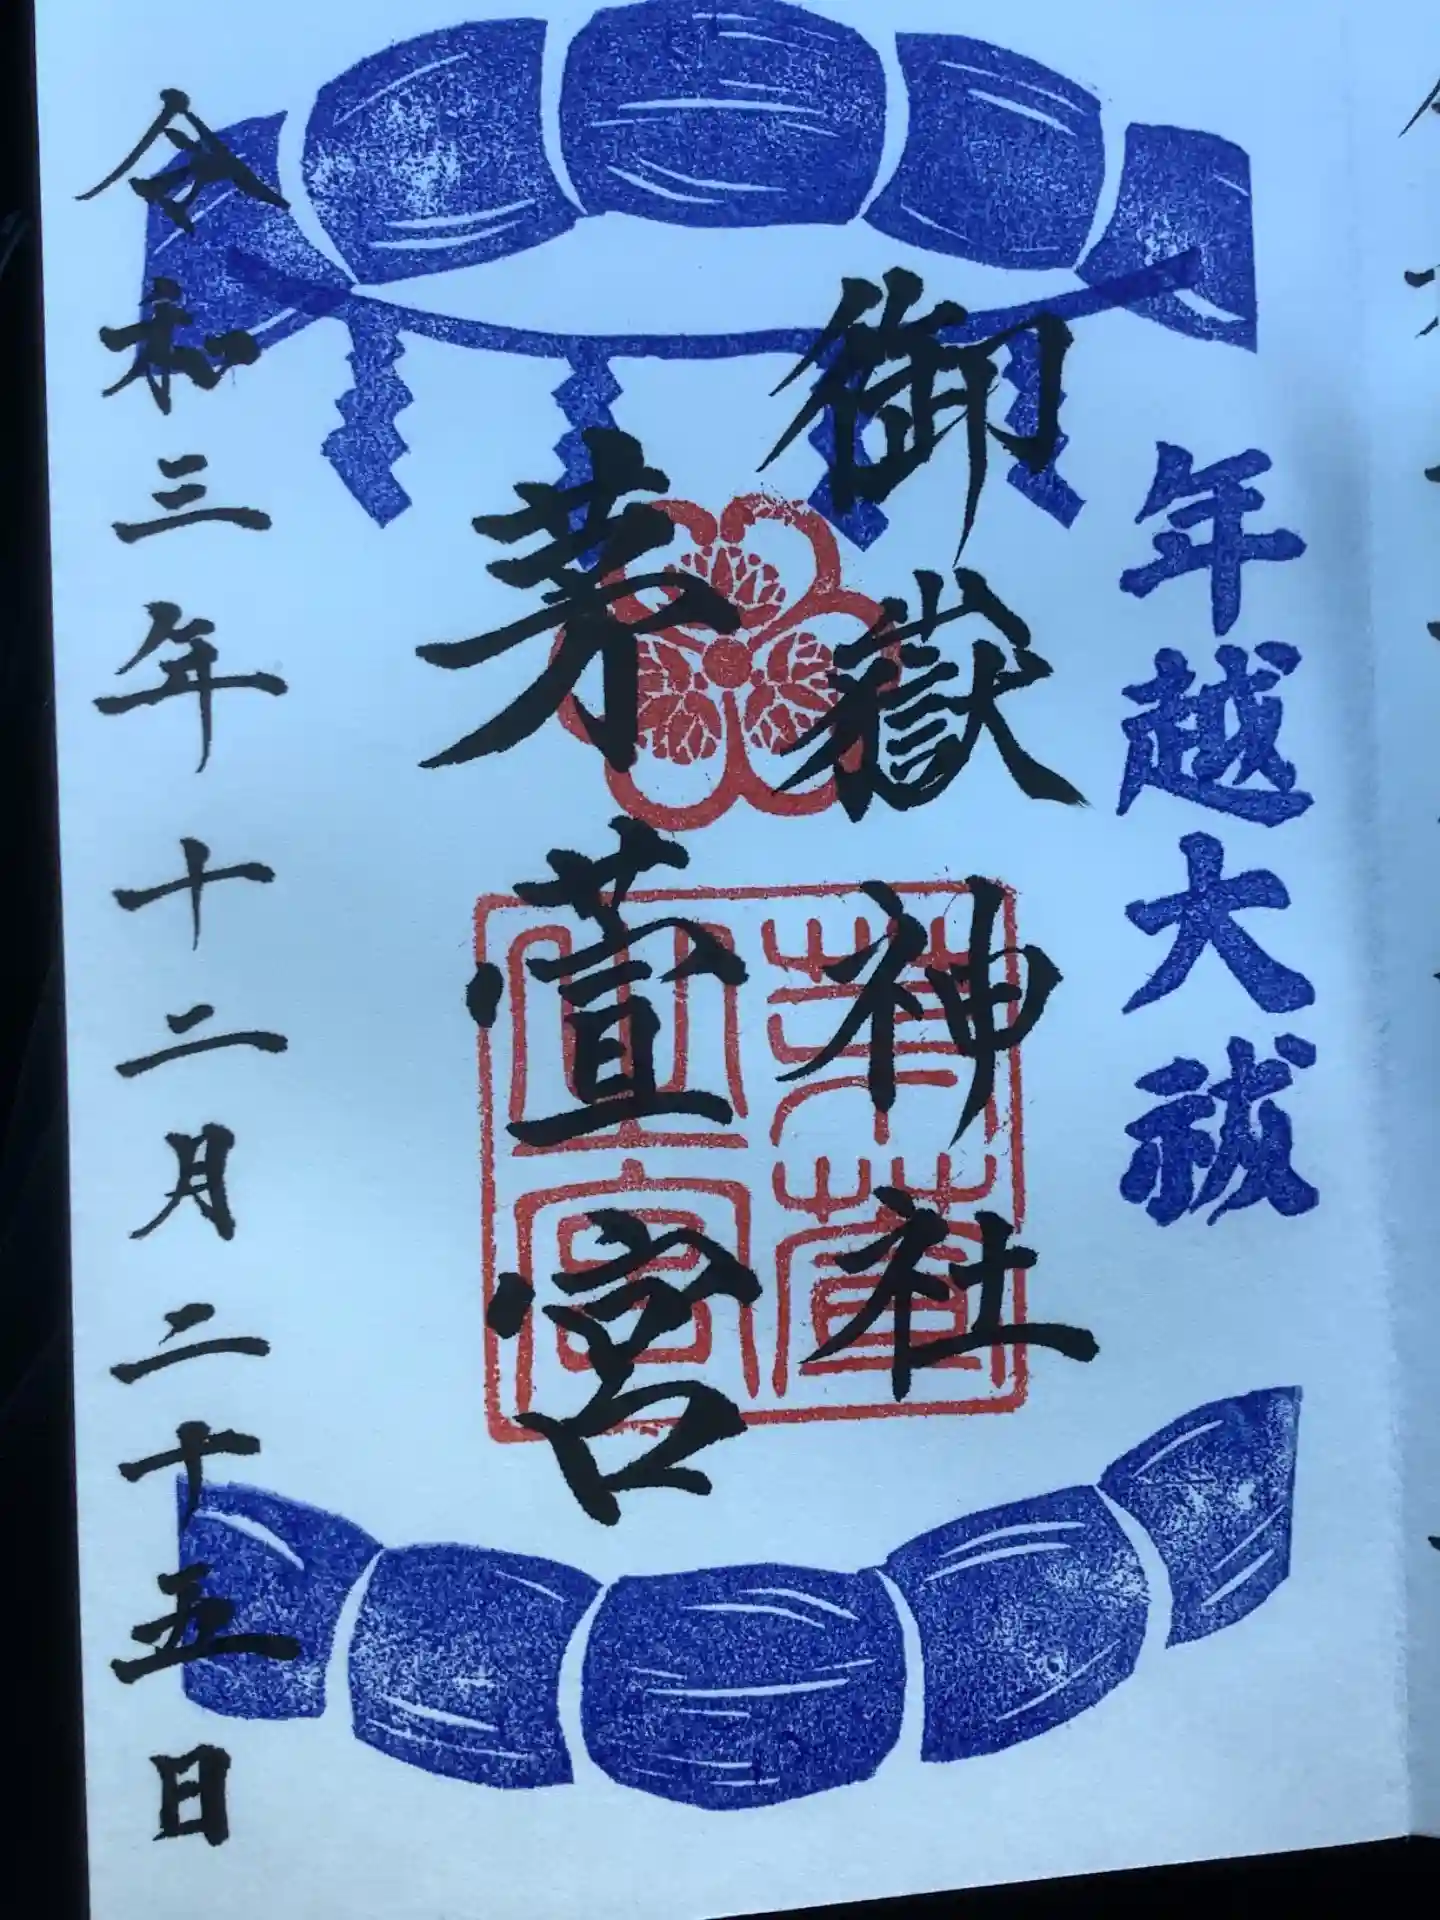 年越大祓
御嶽神社
茅萱宮
令和三年十二月二十五日
茅萱
之宮